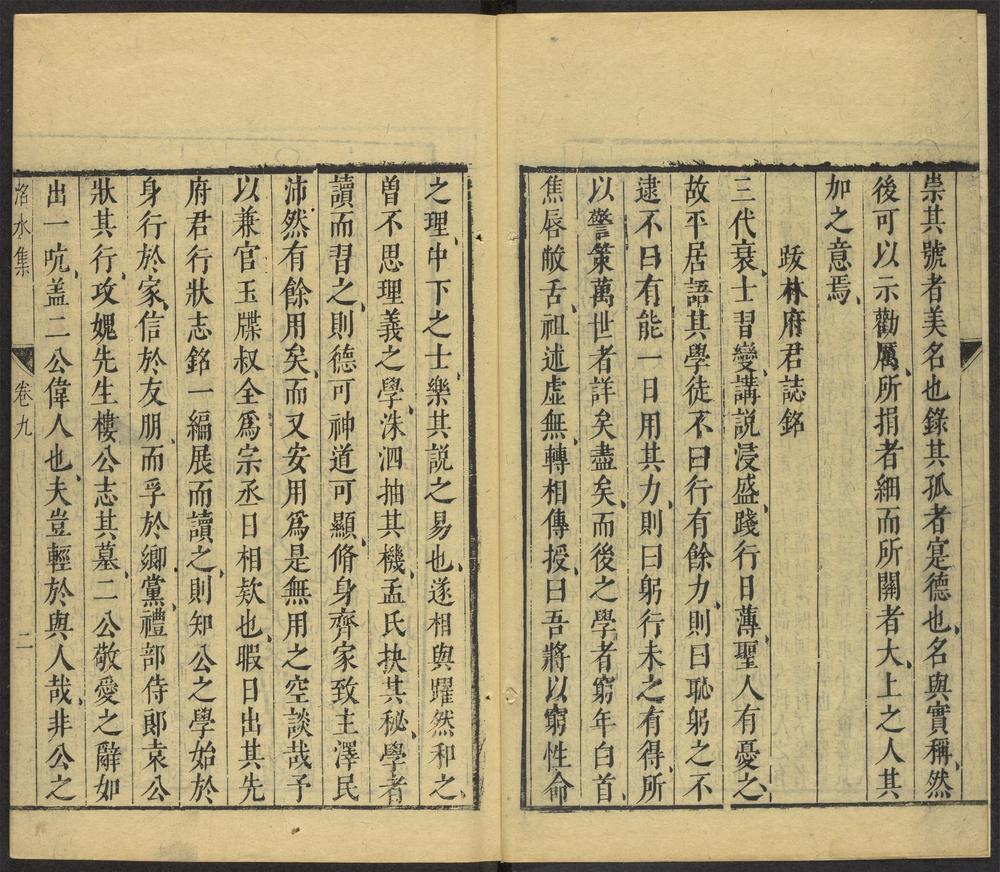 崇其號者美名也錄其孤者寔德也名與實稱然
後可以示勸厲所捐者細而所關者大上之人其
加之意焉
跋林府君誌銘
三代衰士習變講說浸盛踐行日薄聖人有憂之
故平居語其學徒不曰行有餘力則曰恥躬之不
逮不曰有能一日用其力則曰躬行未之有得所
以警策萬世者詳矣盡矣而後之學者窮年白首
焦唇敝舌祖述虛無轉相傳授曰吾將以窮性命
之理中下之士樂其說之易也遂相與躍然和之
曽不思理義之學洙泗抽其機孟氏抉其秘學者
讀而習之則德可神道可顯脩身齊家致主澤民
沛然有餘用矣而又安用爲是無用之空談哉予
以兼官玉牒叔全爲宗丞日相欵也暇日出其先
府君行狀志銘一編展而讀之則知公之學始於
身行於家信於友朋而孚於鄉黨禮部侍郎袁公
狀其行攻媿先生樓公志其墓二公敬愛之辭如
出一吭盖二公偉人也夫豈輕於與人哉非公之
洺水集 卷九 二